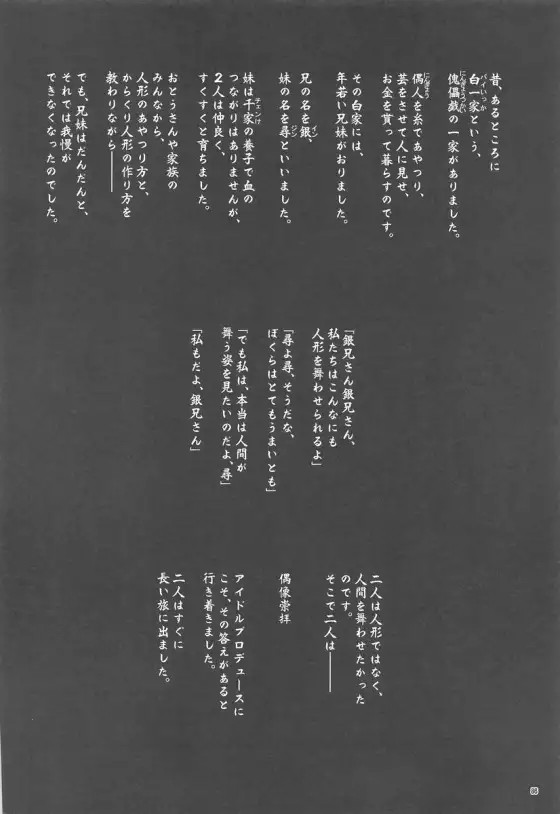 昔、あるところに
白一家という、
傀儡戯の一家がありました。
偶人を糸であやつり、
芸をさせて人に見せ、
お金を貰って暮らすのです。
その白家には、
年若い兄妹がおりました。
兄の名を銀、
妹の名を尋といいました。
妹は千家の養子で血の
つながりはありませんが、
2人は仲良く、
すくすくと育ちました。
おとうさんや家族の
みんなから、
人形のあやつり方と、
からくり人形の作り方を
教わりながら――
でも、兄妹はだんだんと、
それでは我慢が
できなくなったのでした。
「銀兄さん銀兄さん、
私たちはこんなにも
人形を舞わせられるよ」
「尋よ尋、そうだな、
ぼくらはとてもうまいとも」
「でも私は、本当は人間が
舞う姿を見たいのだよ、尋」
「私もだよ、銀兄さん」
二人は人形ではなく、
人間を舞わせたかった
のです。
そこで二人は――
偶像崇拝
アイドルプロデュースに
こそ、その答えがあると
行き着きました。
二人はすぐに
長い旅に出ました。